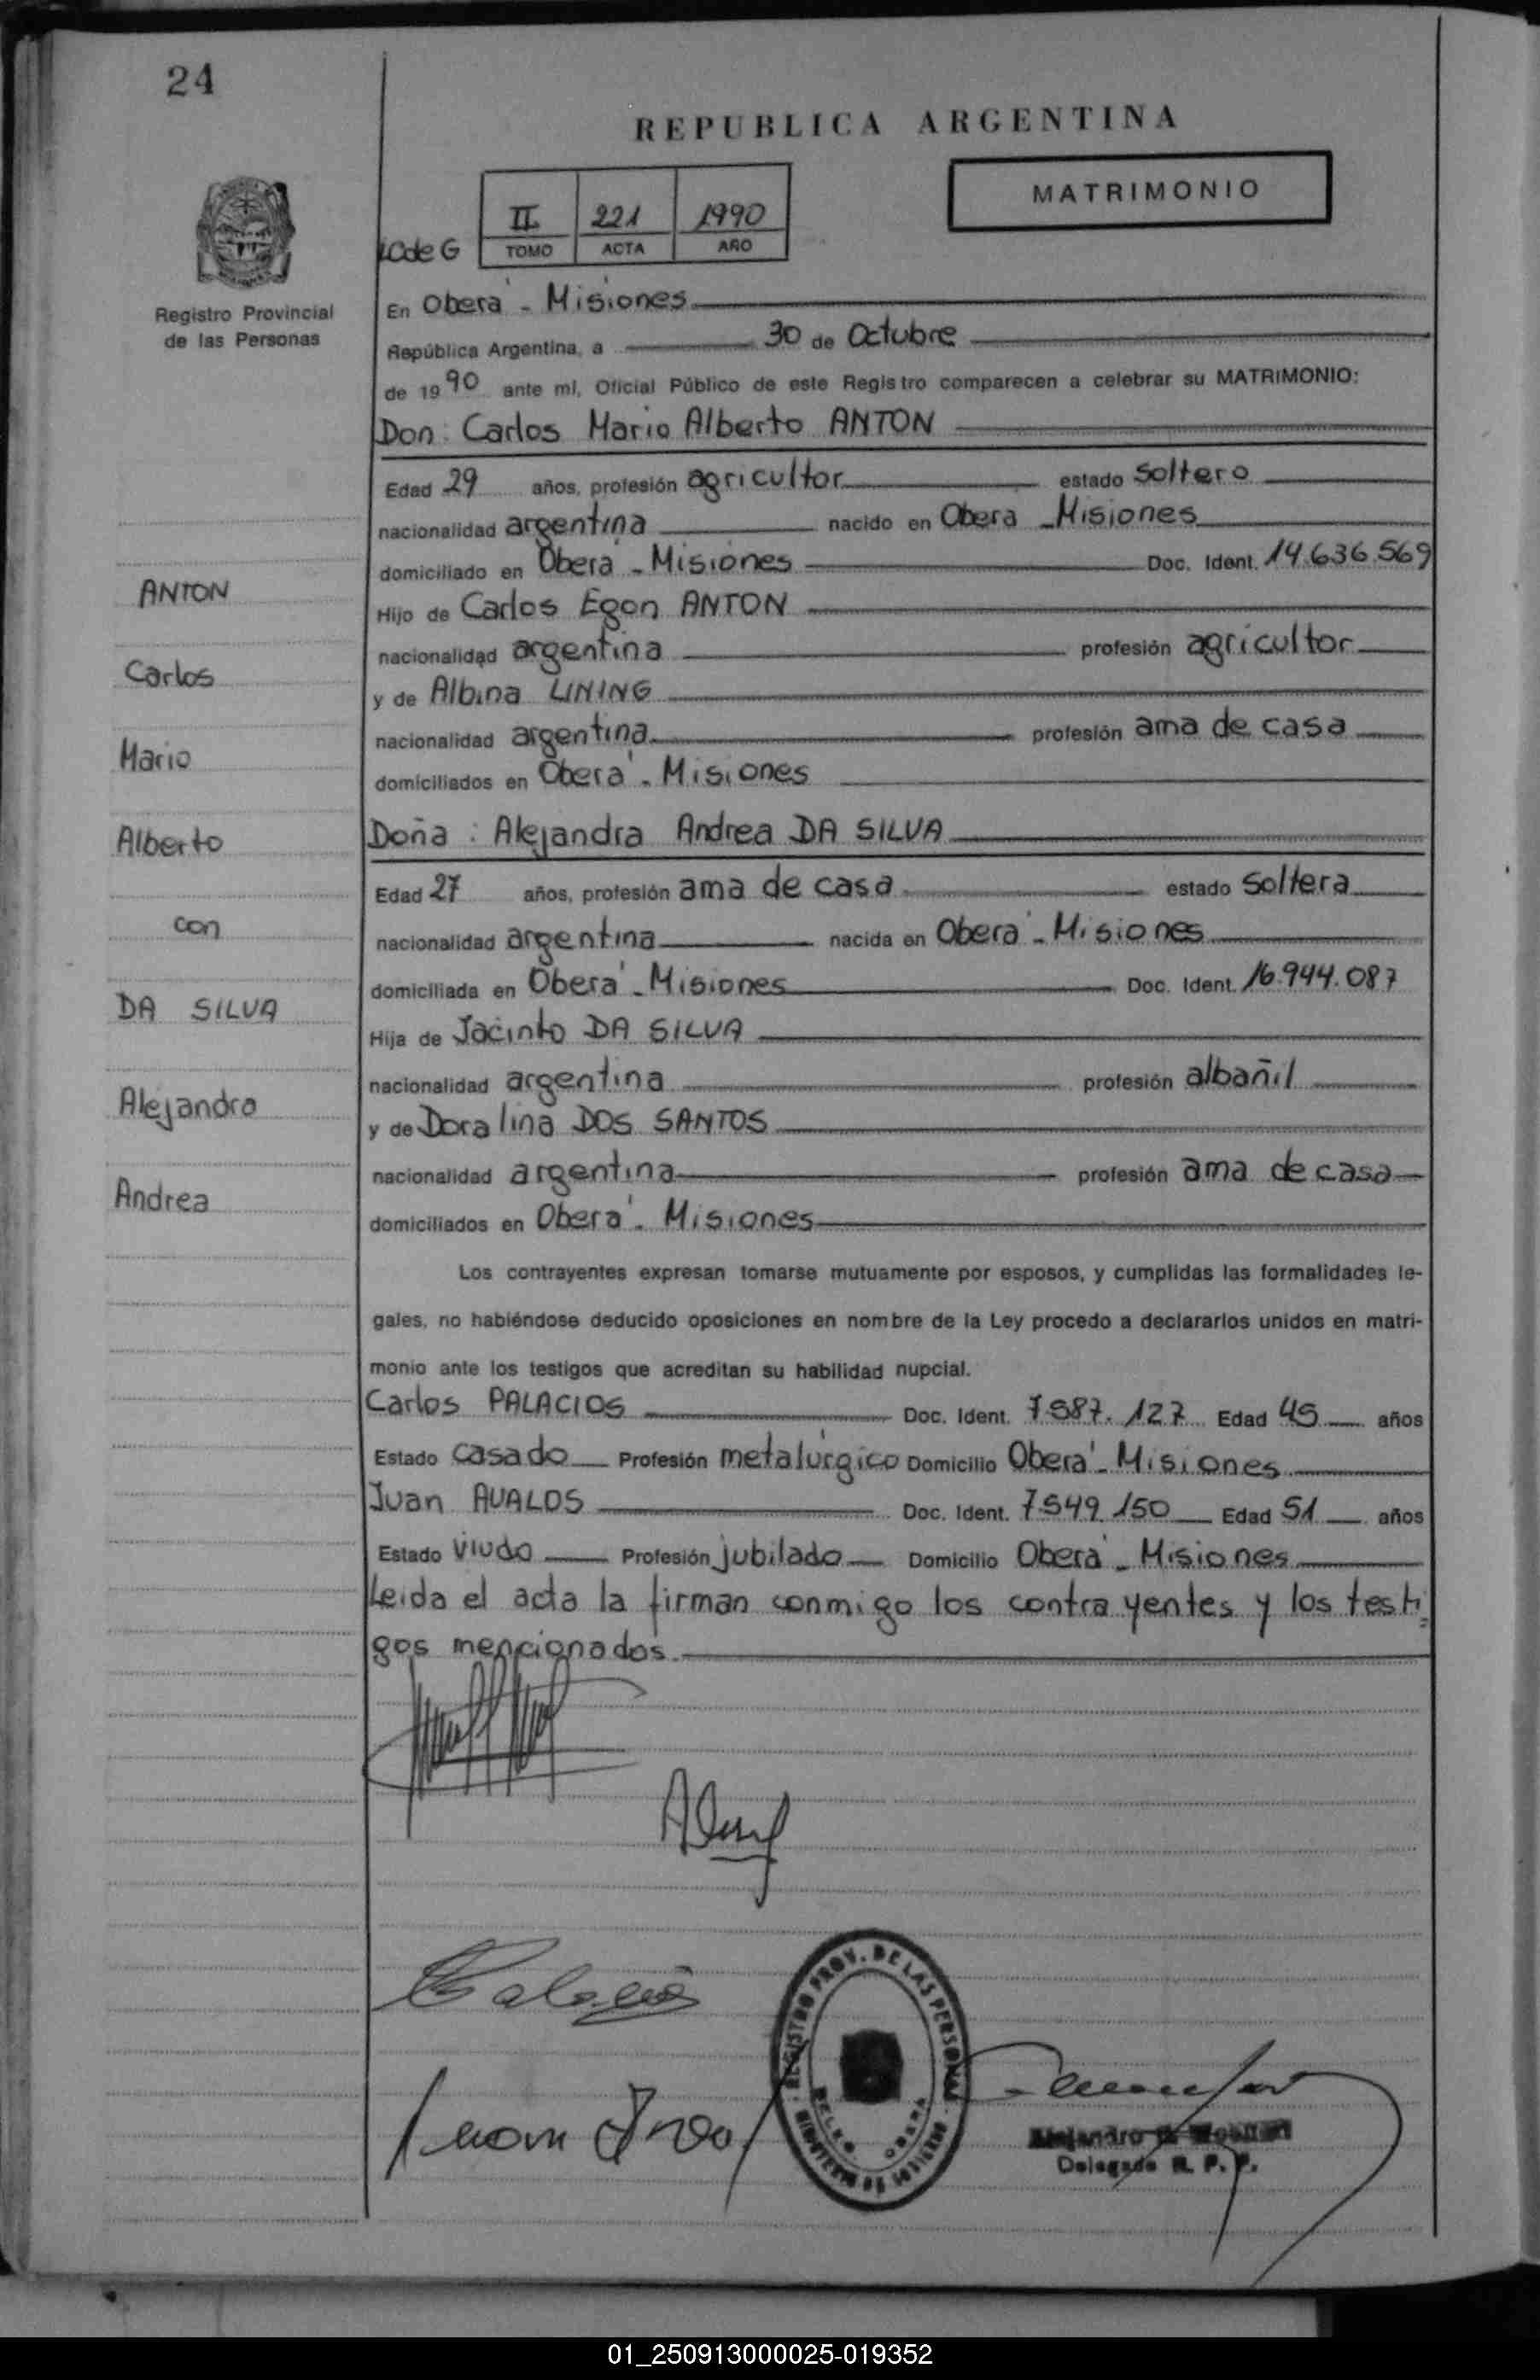 24
REPUBLICA ARGENTINA
MATRIMONIO
II 221 1990
TOMO ACTA AÑO
LC de G
Registro Provincial
de las Personas
En Oberá - Misiones
República Argentina, a 30 de Octubre
de 1990 ante mí, Oficial Público de este Registro comparecen a celebrar su MATRIMONIO:
Don: Carlos Mario Alberto ANTON
Edad 29 años, profesión agricultor estado soltero
nacionalidad argentina nacido en Obera - Misiones
domiciliado en Oberá - Misiones Doc. Ident. 14.636.569
Hijo de Carlos Egon ANTON
nacionalidad argentina profesión agricultor
y de Albina LINING
nacionalidad argentina profesión ama de casa
domiciliados en Oberá - Misiones
Doña: Alejandra Andrea DA SILVA
Edad 27 años, profesión ama de casa estado soltera
nacionalidad argentina nacida en Oberá - Misiones
domiciliada en Oberá - Misiones Doc. Ident. 16.944.087
Hija de Jacinto DA SILVA
nacionalidad argentina profesión albañil
y de Doralina DOS SANTOS
nacionalidad argentina profesión ama de casa
domiciliados en Oberá - Misiones
ANTON
Carlos
Mario
Alberto
con
DA SILVA
Alejandra
Andrea
Los contrayentes expresan tomarse mutuamente por esposos, y cumplidas las formalidades le-
gales, no habiéndose deducido oposiciones en nombre de la Ley procedo a declararlos unidos en matri-
monio ante los testigos que acreditan su habilidad nupcial.
Carlos PALACIOS Doc. Ident. 7.587.127 Edad 45 años
Estado casado Profesión metalúrgico Domicilio Oberá - Misiones
Juan AVALOS Doc. Ident. 7.549.150 Edad 51 años
Estado viudo Profesión jubilado Domicilio Oberá - Misiones
Leida el acta la firman conmigo los contrayentes y los testi=
gos mencionados.
REGISTRO PROV. DE LAS PERSONAS
OBERA
Alejandro
Delegado R. P. P.
01_250913000025-019352